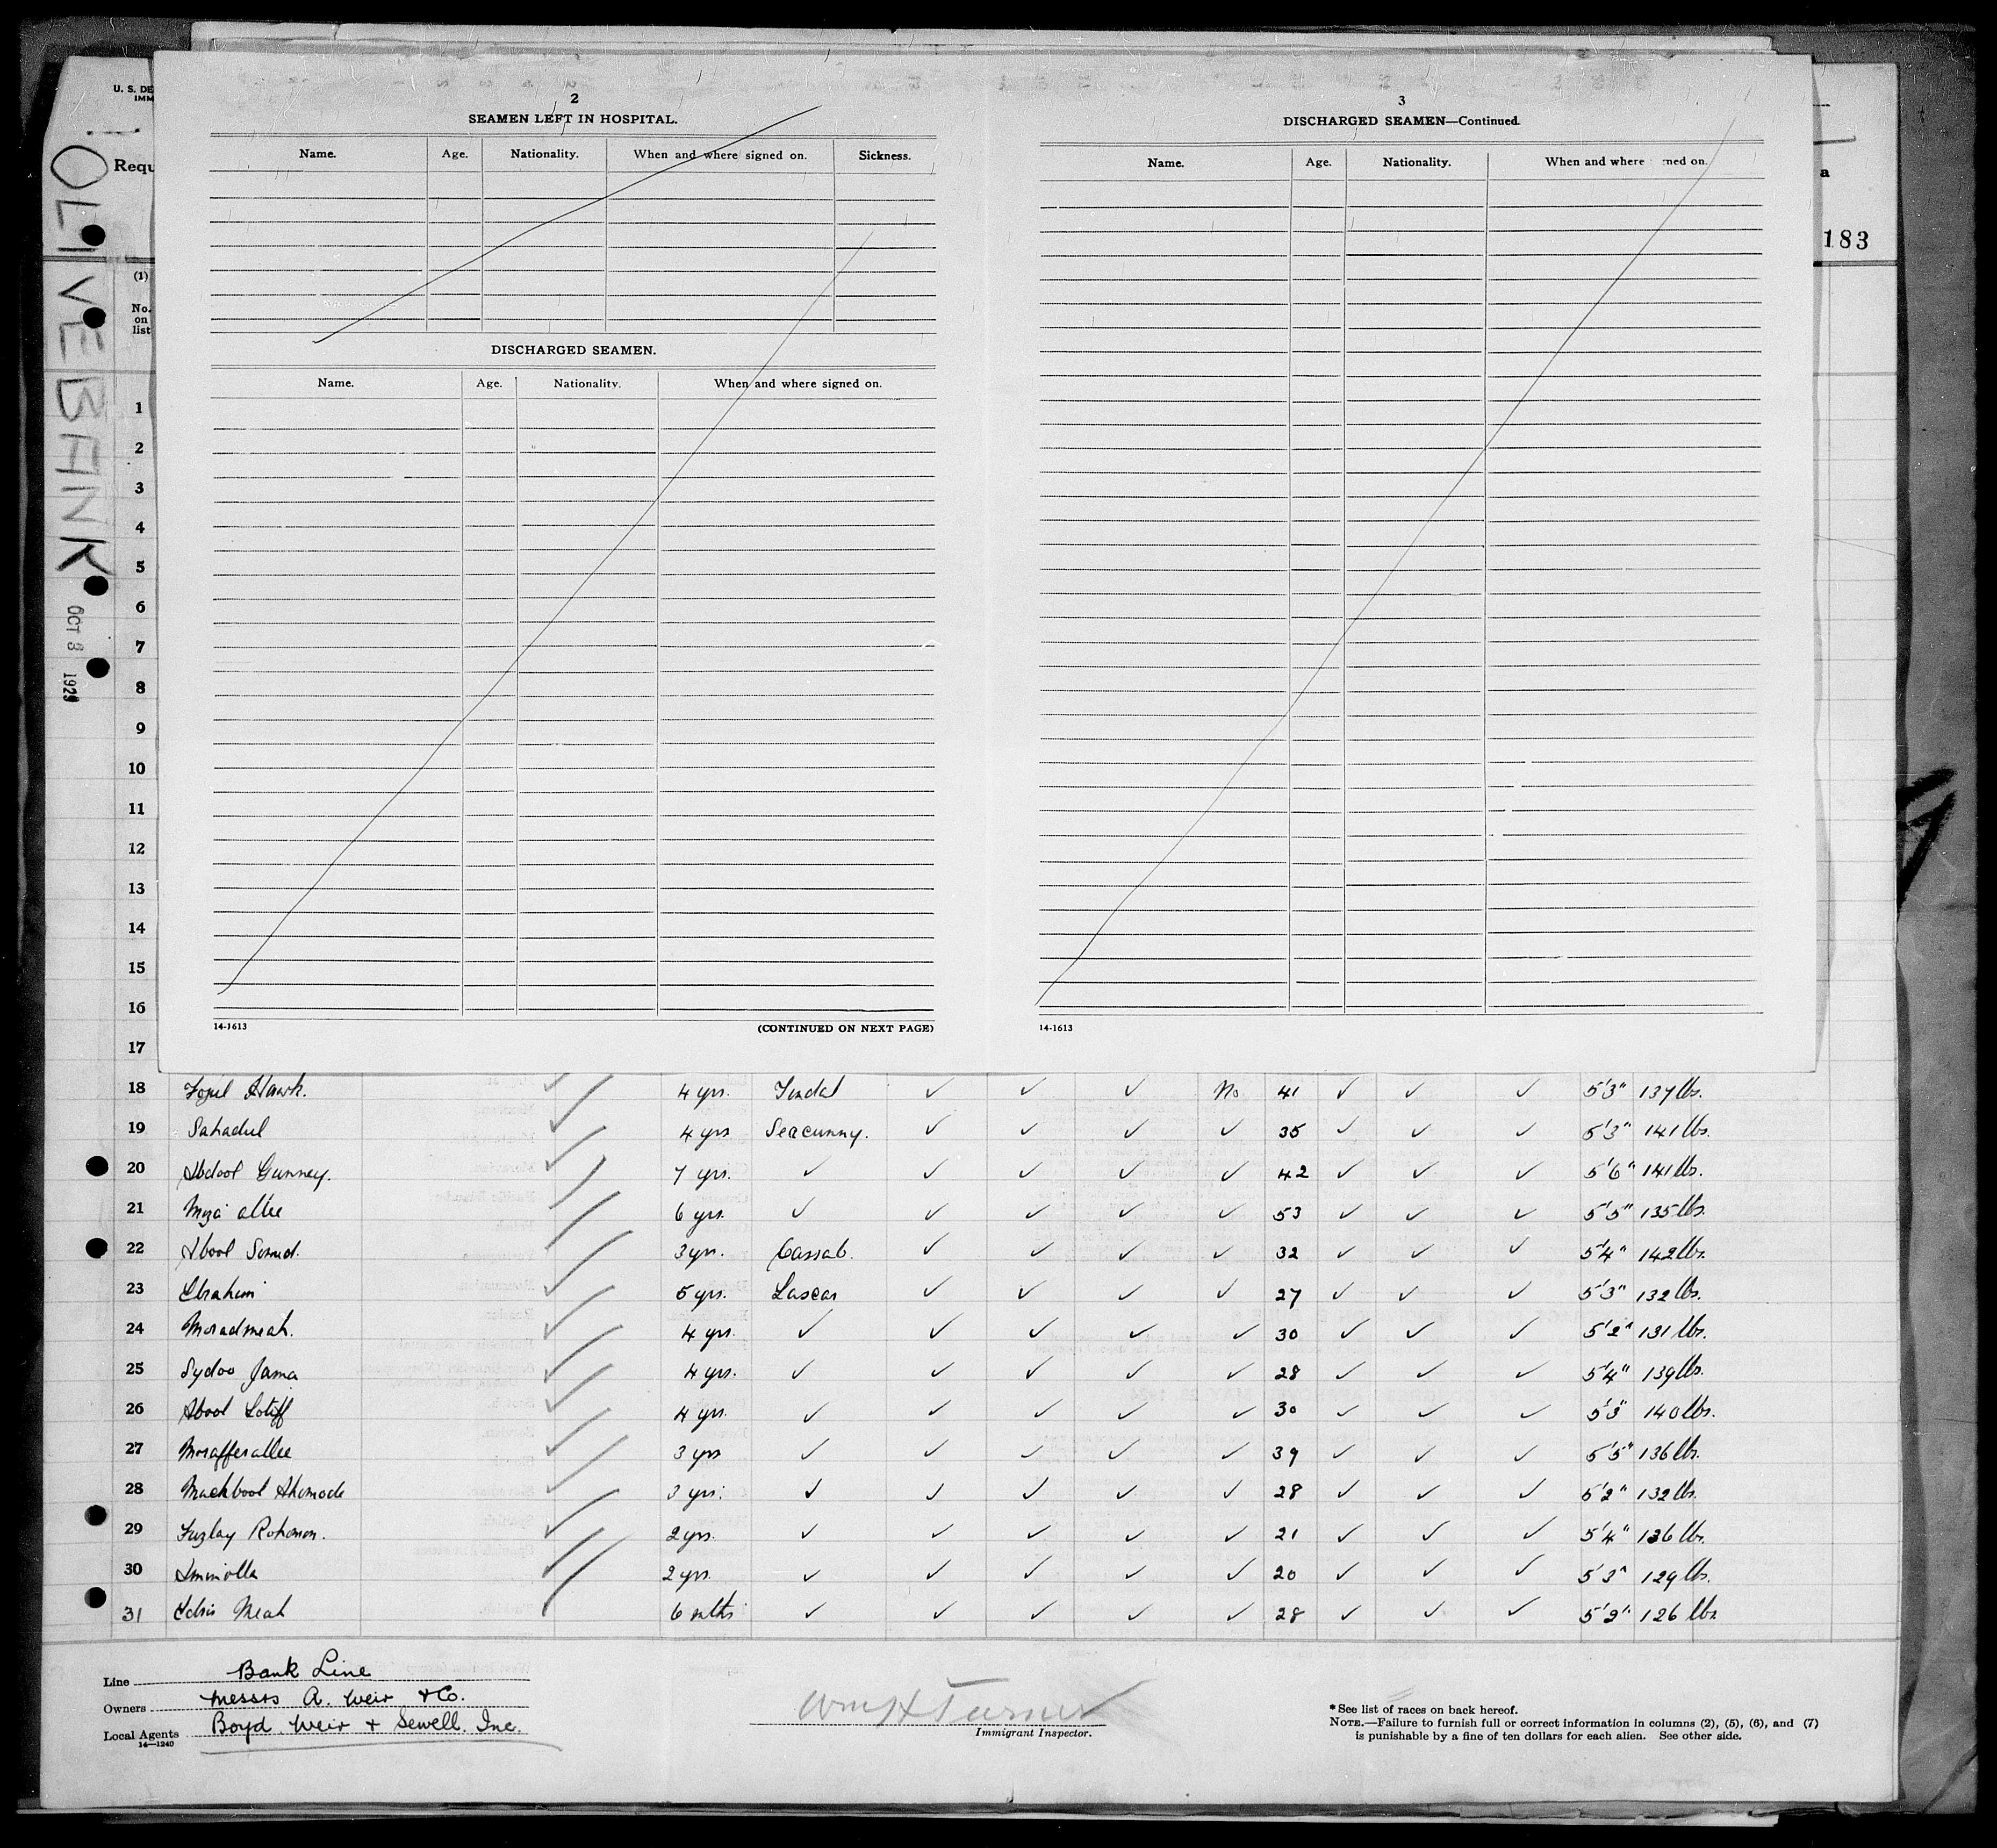 U. S. DE
IMM
Requ
OLIVEBANK
OCT 8 1929
a
183
(1)
No.
on
list
2
SEAMEN LEFT IN HOSPITAL.
Name. Age. Nationality. When and where signed on. Sickness.
DISCHARGED SEAMEN.
Name. Age. Nationality. When and where signed on.
14-1613 (CONTINUED ON NEXT PAGE)
3
DISCHARGED SEAMEN—Continued.
Name. Age. Nationality. When and where ned on.
14-1613
1
2
3
4
5
6
7
8
9
10
11
12
13
14
15
16
17
18 Hawk. 4 yrs. Tindal ✓ ✓ ✓ No 41 ✓ ✓ ✓ 5'3" 137 lbs.
19 Sahadul 4 yrs Seacunny. ✓ ✓ ✓ ✓ 35 ✓ ✓ ✓ 5'3" 141 lbs.
20 Abdool Gunney. 7 yrs. ✓ ✓ ✓ ✓ ✓ 42 ✓ ✓ ✓ 5'6" 141 lbs.
21 allee 6 yrs. ✓ ✓ ✓ ✓ ✓ 53 ✓ ✓ ✓ 5'5" 135 lbs.
22 Abool 3 yrs. Cassab. ✓ ✓ ✓ ✓ 32 ✓ ✓ ✓ 5'4" 142 lbs.
23 Ebrahim 5 yrs. Lascar ✓ ✓ ✓ ✓ 27 ✓ ✓ ✓ 5'3" 132 lbs.
24 Moradmeah. 4 yrs. ✓ ✓ ✓ ✓ ✓ 30 ✓ ✓ ✓ 5'2" 131 lbs.
25 Sydoo Jama 4 yrs. ✓ ✓ ✓ ✓ ✓ 28 ✓ ✓ ✓ 5'4" 139 lbs.
26 Abool Lotiff 4 yrs. ✓ ✓ ✓ ✓ ✓ 30 ✓ ✓ ✓ 5'3" 140 lbs.
27 Mosafferallee 3 yrs ✓ ✓ ✓ ✓ ✓ 39 ✓ ✓ ✓ 5'5" 136 lbs.
28 Mackbool Ahamode 3 yrs. ✓ ✓ ✓ ✓ ✓ 28 ✓ ✓ ✓ 5'2" 132 lbs.
29 Fuzlay Rohomon. 2 yrs. ✓ ✓ ✓ ✓ ✓ 21 ✓ ✓ ✓ 5'4" 136 lbs.
30 Aminolla 2 yrs. ✓ ✓ ✓ ✓ ✓ 20 ✓ ✓ ✓ 5'3" 129 lbs.
31 Idris Meah 6 mths ✓ ✓ ✓ ✓ ✓ 28 ✓ ✓ ✓ 5'2" 126 lbs.
Line Bank Line
Owners Messrs A. Weir & Co.
Local Agents Boyd. Weir + Sewell. Inc.
14—1240
Wm H Turner
Immigrant Inspector.
*See list of races on back hereof.
NOTE.—Failure to furnish full or correct information in columns (2), (5), (6), and (7)
is punishable by a fine of ten dollars for each alien. See other side.